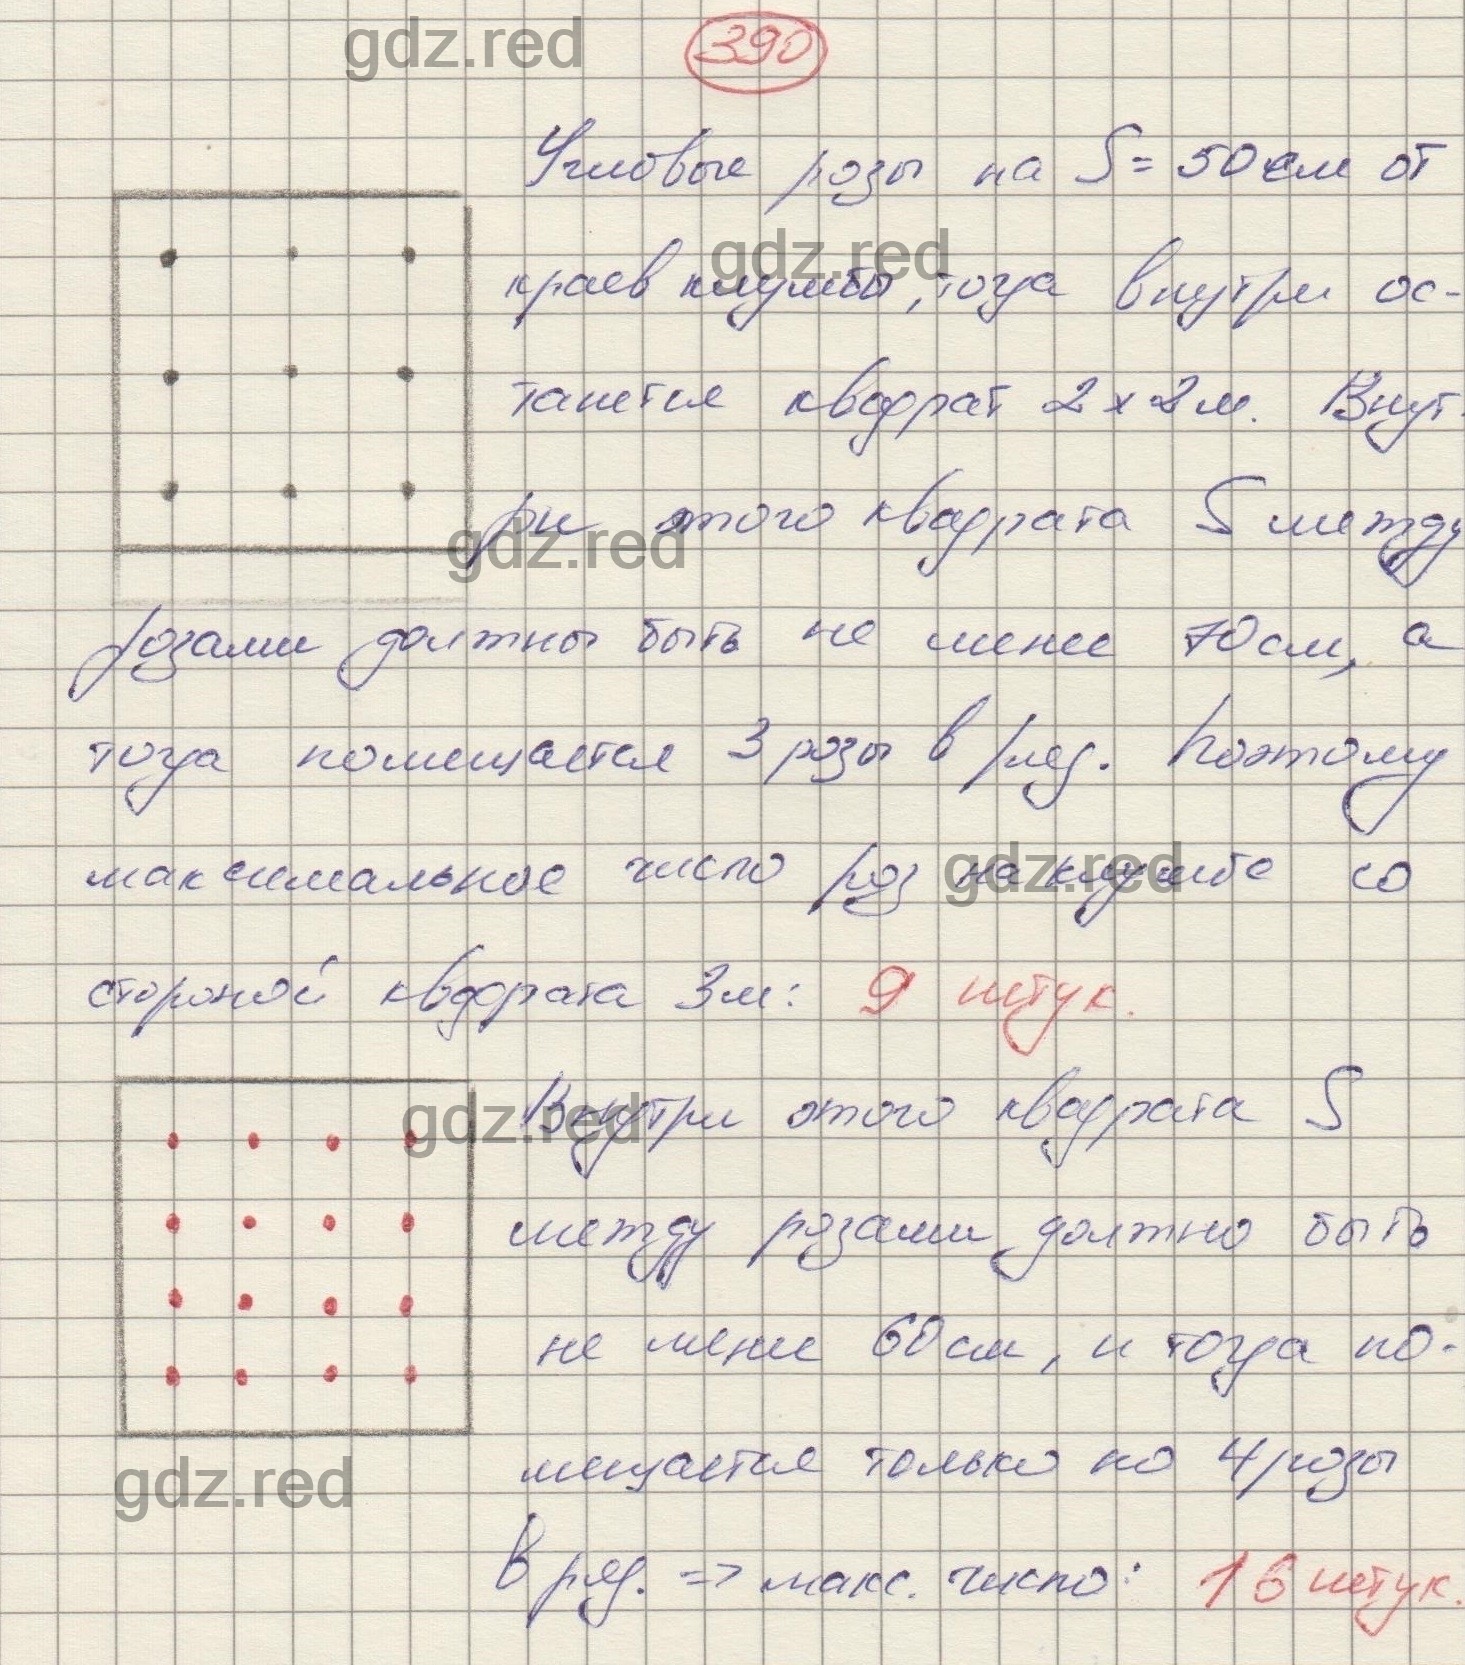 gdz.red
390
Угловые розы на S = 50 см от
gdz.red
краев клумбы, тогда внутри ос-
танется квадрат 2 х 2 м. Внут-
ри этого квадрата S между
gdz.red
розами должны быть не менее 70 см, а
тогда помещается 3 розы в ряд. Поэтому
максимальное число роз на клумбе со
gdz.red
стороной квадрата 3 м: 9 штук.
Внутри этого квадрата S
gdz.red
между розами должно быть
не мене 60 см, и тогда по-
мещается только по 4 розы
gdz.red
в ряд. => макс. число: 16 штук.